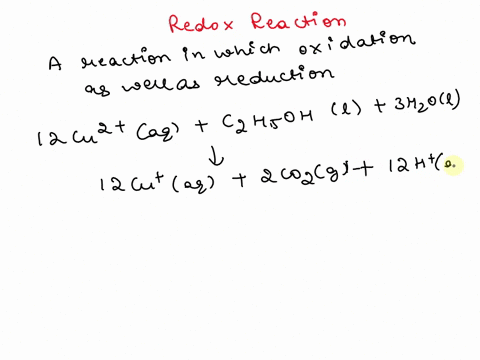 Redox Reaction
A reaction in which oxidation
as well as reduction
12Cu²⁺ (aq) + C₂H₅OH (l) + 3H₂O(l)
↓
12Cu⁺ (aq) + 2CO₂(g) + 12H⁺(a